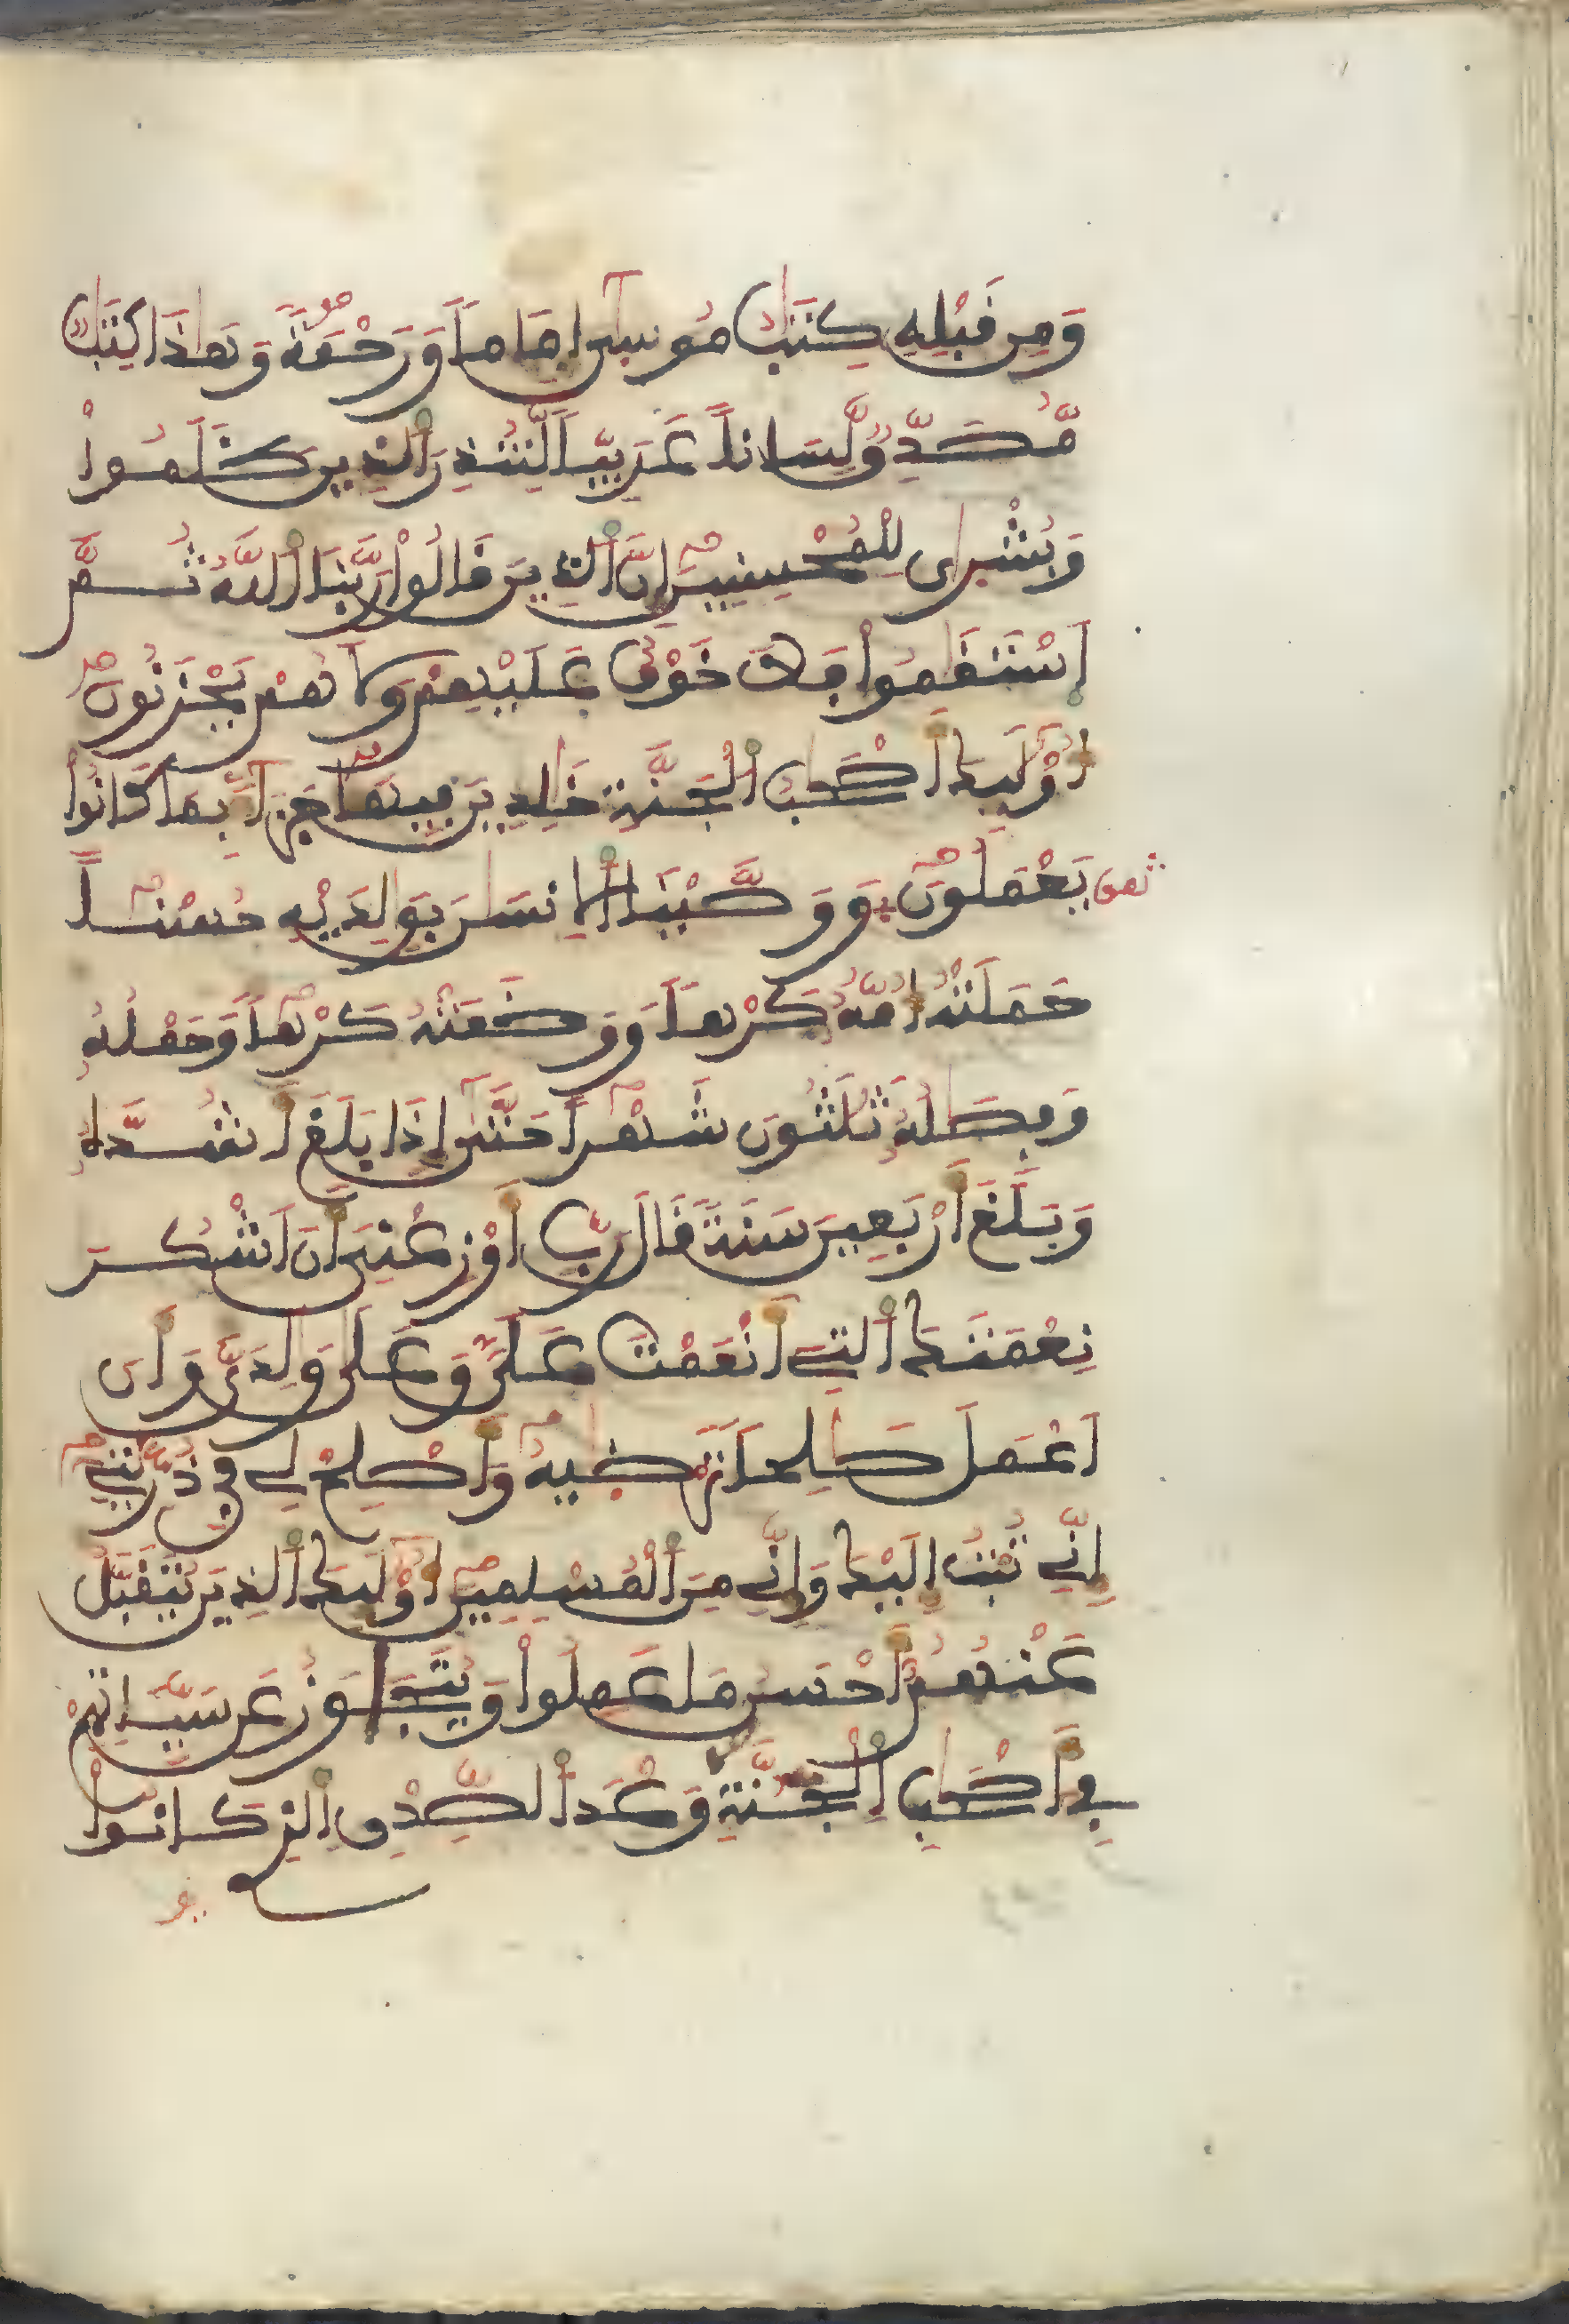 وَمِن قَبْلِهِ كِتَٰبُ مُوسىٰٓ إِمَاماً وَرَحْمَةً وَهَٰذَا كِتَٰبٌ
مُّصَدِّقٌ لِّسَاناً عَرَبِيّاً لِّتُنذِرَ ٱلذِينَ ظَلَمُواْ
وَبُشْرىٰ لِلْمُحْسِنِينَ إِنَّ ٱلذِينَ قَالُواْ رَبُّنَا ٱللَّهُ ثُمَّ
ٱسْتَقَٰمُواْ فَلَا خَوْفٌ عَلَيْهِمْ وَلَا هُمْ يَحْزَنُونَ
أُوْلَٰٓئِكَ أَصْحَٰبُ ٱلْجَنَّةِ خَٰلِدِينَ فِيهَا جَزَآءَۢ بِمَا كَانُواْ
ثمن يَعْمَلُونَ وَوَصَّيْنَا ٱلْإِنسَٰنَ بِوَٰلِدَيْهِ حُسْناً
حَمَلَتْهُ أُمُّهُۥ كَرْهاً وَوَضَعَتْهُ كَرْهاً وَحَمْلُهُۥ
وَفِصَٰلُهُۥ ثَلَٰثُونَ شَهْراً حَتَّىٰٓ إِذَا بَلَغَ أَشُدَّهُۥ
وَبَلَغَ أَرْبَعِينَ سَنَةً قَالَ رَبِّ أَوْزِعْنِي أَنَ اَشْكُرَ
نِعْمَتَكَ ٱلتِي أَنْعَمْتَ عَلَيَّ وَعَلَىٰ وَٰلِدَيَّ وَأَنَ
اَعْمَلَ صَٰلِحاً تَرْضَىٰهُ وَأَصْلِحْ لِي فِي ذُرِّيَّتِي
إِنِّي تُبْتُ إِلَيْكَ وَإِنِّي مِنَ ٱلْمُسْلِمِينَ أُوْلَٰٓئِكَ ٱلذِينَ يُتَقَبَّلُ
عَنْهُمُۥٓ أَحْسَنُ مَا عَمِلُواْ وَيُتَجَاوَزُ عَن سَيِّـَٔاتِهِمْ
فِي أَصْحَٰبِ ٱلْجَنَّةِ وَعْدَ ٱلصِّدْقِ ٱلذِي كَانُواْ
يو